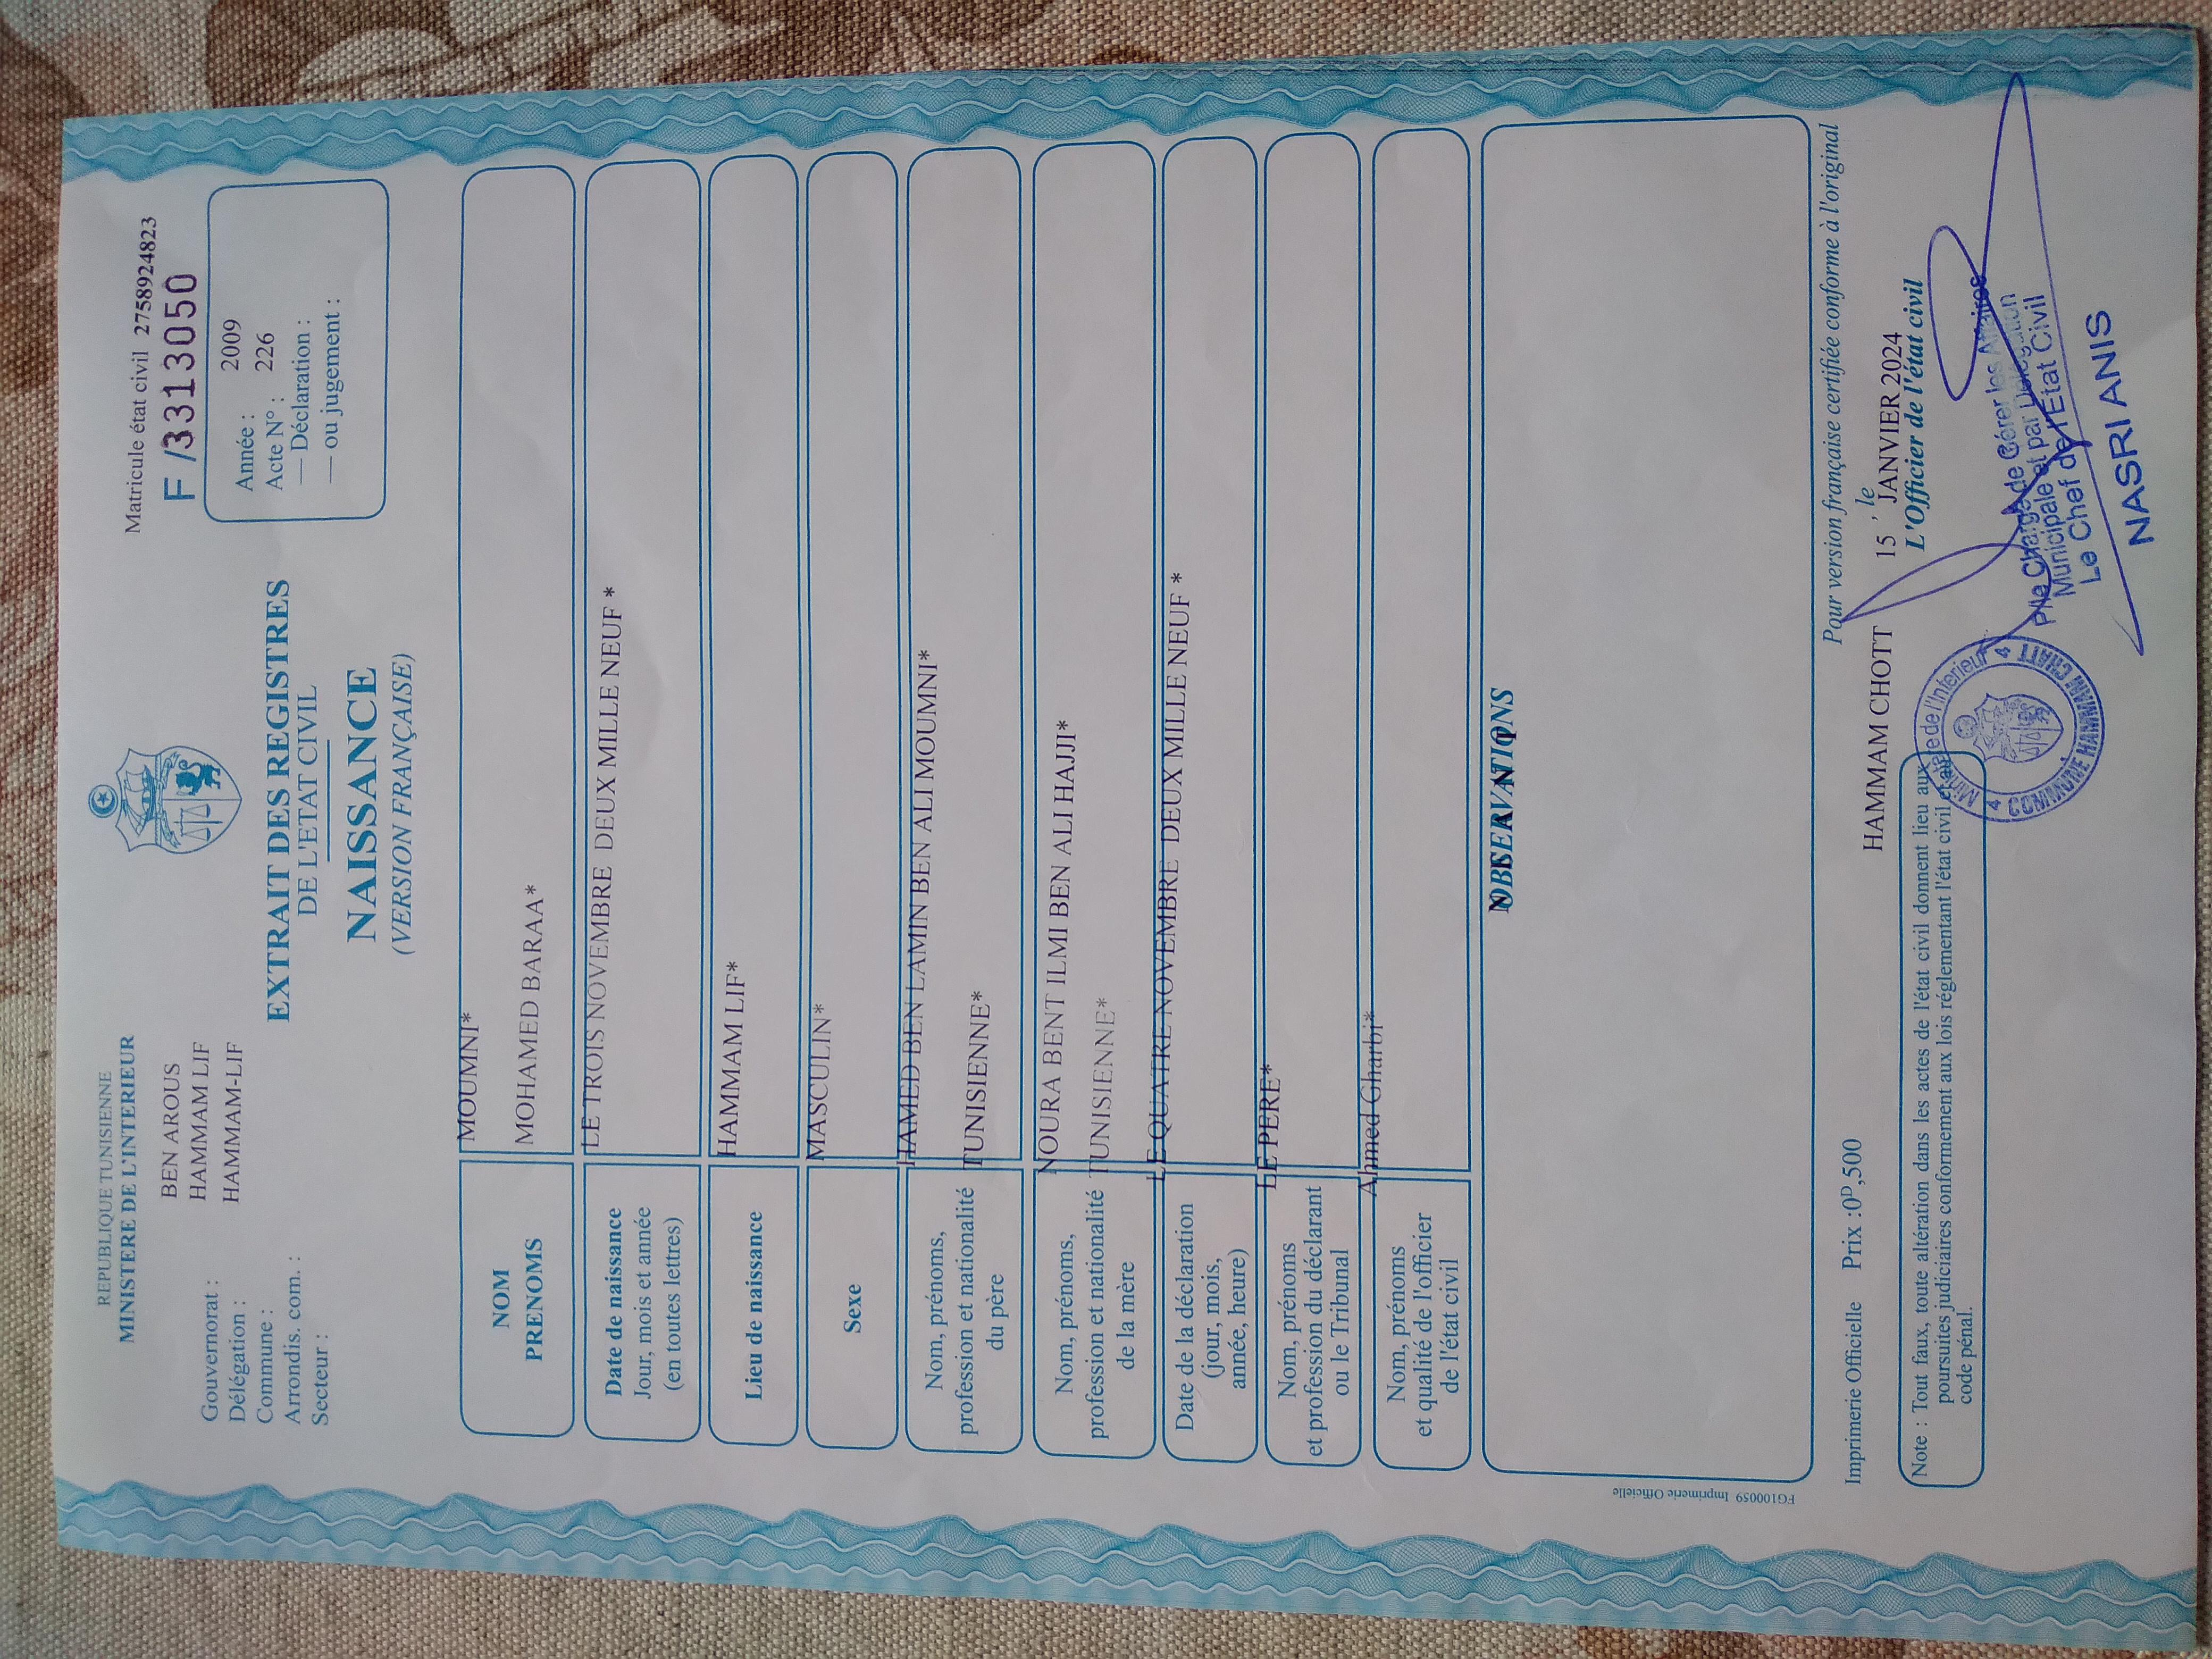 REPUBLIQUE TUNISIENNE
MINISTERE DE L'INTERIEUR
Gouvernorat : BEN AROUS
Délégation : HAMMAM LIF
Commune : HAMMAM-LIF
Arrondis. com. :
Secteur :
Matricule état civil 27589248​23
F /3313050
Année : 2009
Acte N° : 226
— Déclaration :
— ou jugement :
EXTRAIT DES REGISTRES
DE L'ETAT CIVIL
NAISSANCE
(VERSION FRANÇAISE)
NOM MOUMNI*
PRENOMS MOHAMED BARAA*
Date de naissance
Jour, mois et année
(en toutes lettres)
LE TROIS NOVEMBRE DEUX MILLE NEUF *
Lieu de naissance HAMMAM LIF*
Sexe MASCULIN*
Nom, prénoms,
profession et nationalité
du père
HAMED BEN LAMIN BEN ALI MOUMNI*
TUNISIENNE*
Nom, prénoms,
profession et nationalité
de la mère
NOURA BENT ILMI BEN ALI HAJJI*
TUNISIENNE*
Date de la déclaration
(jour, mois,
année, heure)
LE QUATRE NOVEMBRE DEUX MILLE NEUF *
Nom, prénoms
et profession du déclarant
ou le Tribunal
LE PERE*
Nom, prénoms
et qualité de l'officier
de l'état civil
Ahmed Gharbi*
OBSERVATIONS
FG100059 Imprimerie Officielle
Imprimerie Officielle Prix :0D,500
Pour version française certifiée conforme à l'original
HAMMAM CHOTT , le 15 JANVIER 2024
L'Officier de l'état civil
Note : Tout faux, toute altération dans les actes de l'état civil donnent lieu aux
poursuites judiciaires conformement aux lois réglementant l'état civil et au
code pénal.
Ministère de l'Interieur
COMMUNE HAMMAM CHATT
P/le Chargé de Gérer les Affaires
Municipale et par Délégation
Le Chef de l'Etat Civil
NASRI ANIS